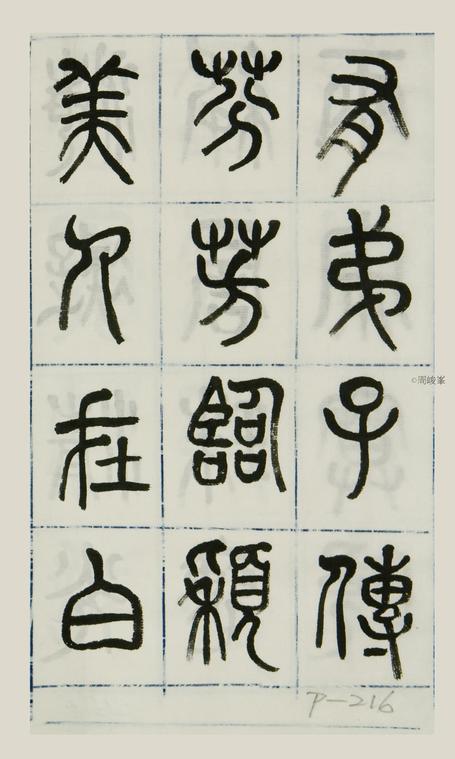 有弟子傳
芬芳臨潁
美人在白
P-216
©周峻峯